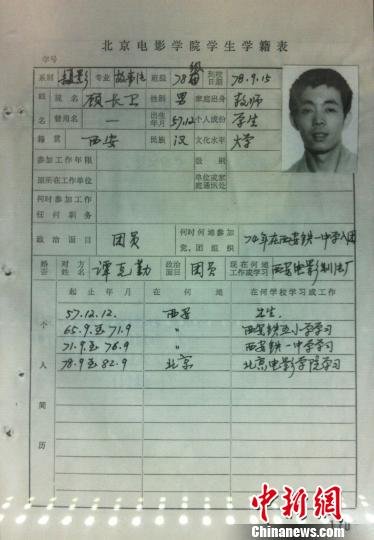 北京电影学院学生学籍表
学号
系别 摄影 专业 故事片 班级 78级 到校日期 78.9.15
姓名 现名 顾长卫 性别 男 家庭出身 教师
曾用名 一 出生年月 57.12 个人成份 学生
籍贯 西安 民族 汉 文化水平 大学
参加工作年限 级别
原所在工作单位 单位或家庭通讯处
何时参加工作任何职务
政治面目 团员 何时何地参加党、团组织 74年在西安铁一中学入团
婚否 对方姓名 谭克勤 政治面目 团员 现在何地工作或学习 西安电影制片厂
个人简历 起止年月 在何地 在何学校学习或工作
57.12.12. 西安 出生.
65.9至71.9 〃 西安铁五小学学习
71.9至76.9 〃 西安铁一中学学习
78.9至82.9 北京 北京电影学院学习
中新网
www.chinanews.com